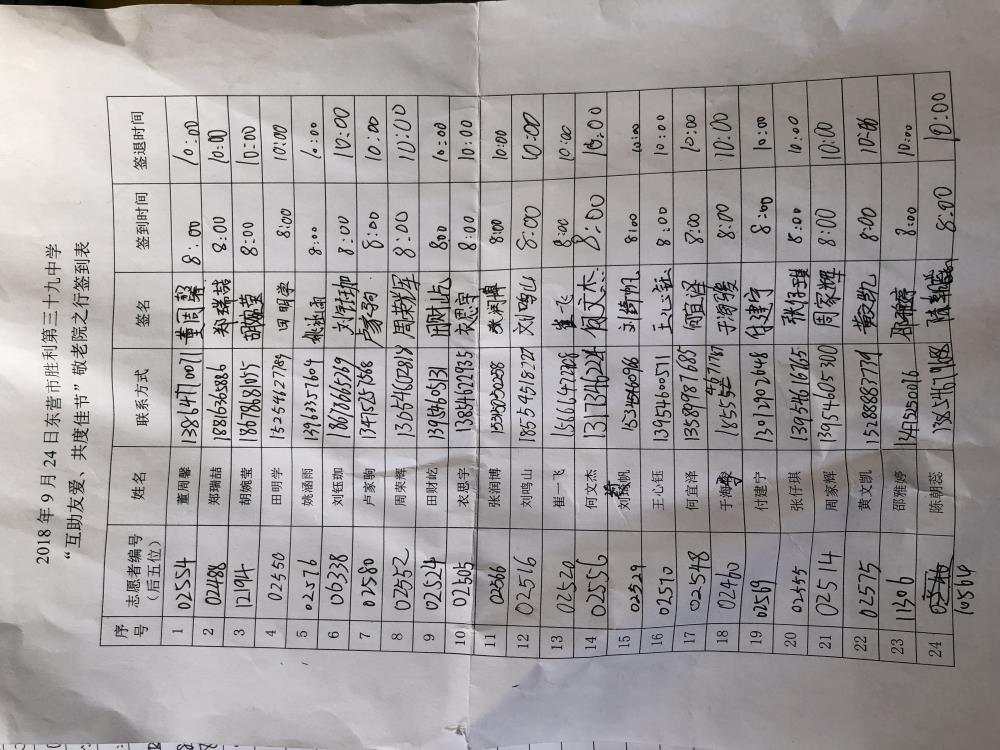 2018年9月24日东营市胜利第三十九中学
“互助友爱、共度佳节”敬老院之行签到表
序号 志愿者编号（后五位） 姓名 联系方式 签名 签到时间 签退时间
1 02554 董周馨 13864710071 董周馨 8:00 10:00
2 02488 郑瑞喆 18816365886 郑瑞喆 8:00 10:00
3 12194 胡婉莹 18678681015 胡婉莹 8:00 10:00
4 02550 田明学 13254627789 田明学 8:00 10:00
5 02576 姚涵雨 13963357604 姚涵雨 8:00 10:00
6 06338 刘钰珈 18678665769 刘钰珈 8:00 10:00
7 02580 卢家驹 13475257568 卢家驹 8:00 10:00
8 02552 周荣辉 13654602818 周荣辉 8:00 10:00
9 02524 田财屹 13954605131 田财屹 800 10:00
10 02505 衣思宇 13854621935 衣思宇 8:00 10:00
11 02566 张润博 张润博 8:00 10:00
12 02516 刘鸣山 18554658727 刘鸣山 8:00 10:00
13 02520 崔一飞 崔一飞 8:00 10:00
14 02556 何文杰 何文杰 8:00 10:00
15 02529 刘 帆 8:00 10:00
16 02570 王心钰 13954600511 王心钰 8:00 10:00
17 02548 何宜泽 13589987685 何宜泽 8:00 10:00
18 02460 于海 8:00 10:00
19 02569 付建宁 13012702648 付建宁 8:00 10:00
20 02555 张仔琪 13954616765 张仔琪 8:00 10:00
21 02514 周家辉 13954605300 周家辉 8:00 10:00
22 02575 黄文凯 15288883779 黄文凯 8:00 10:00
23 11306 邵雅婷 13475220016 邵雅婷 8:00 10:00
24 10564 陈朝蕊 8:00 10:00